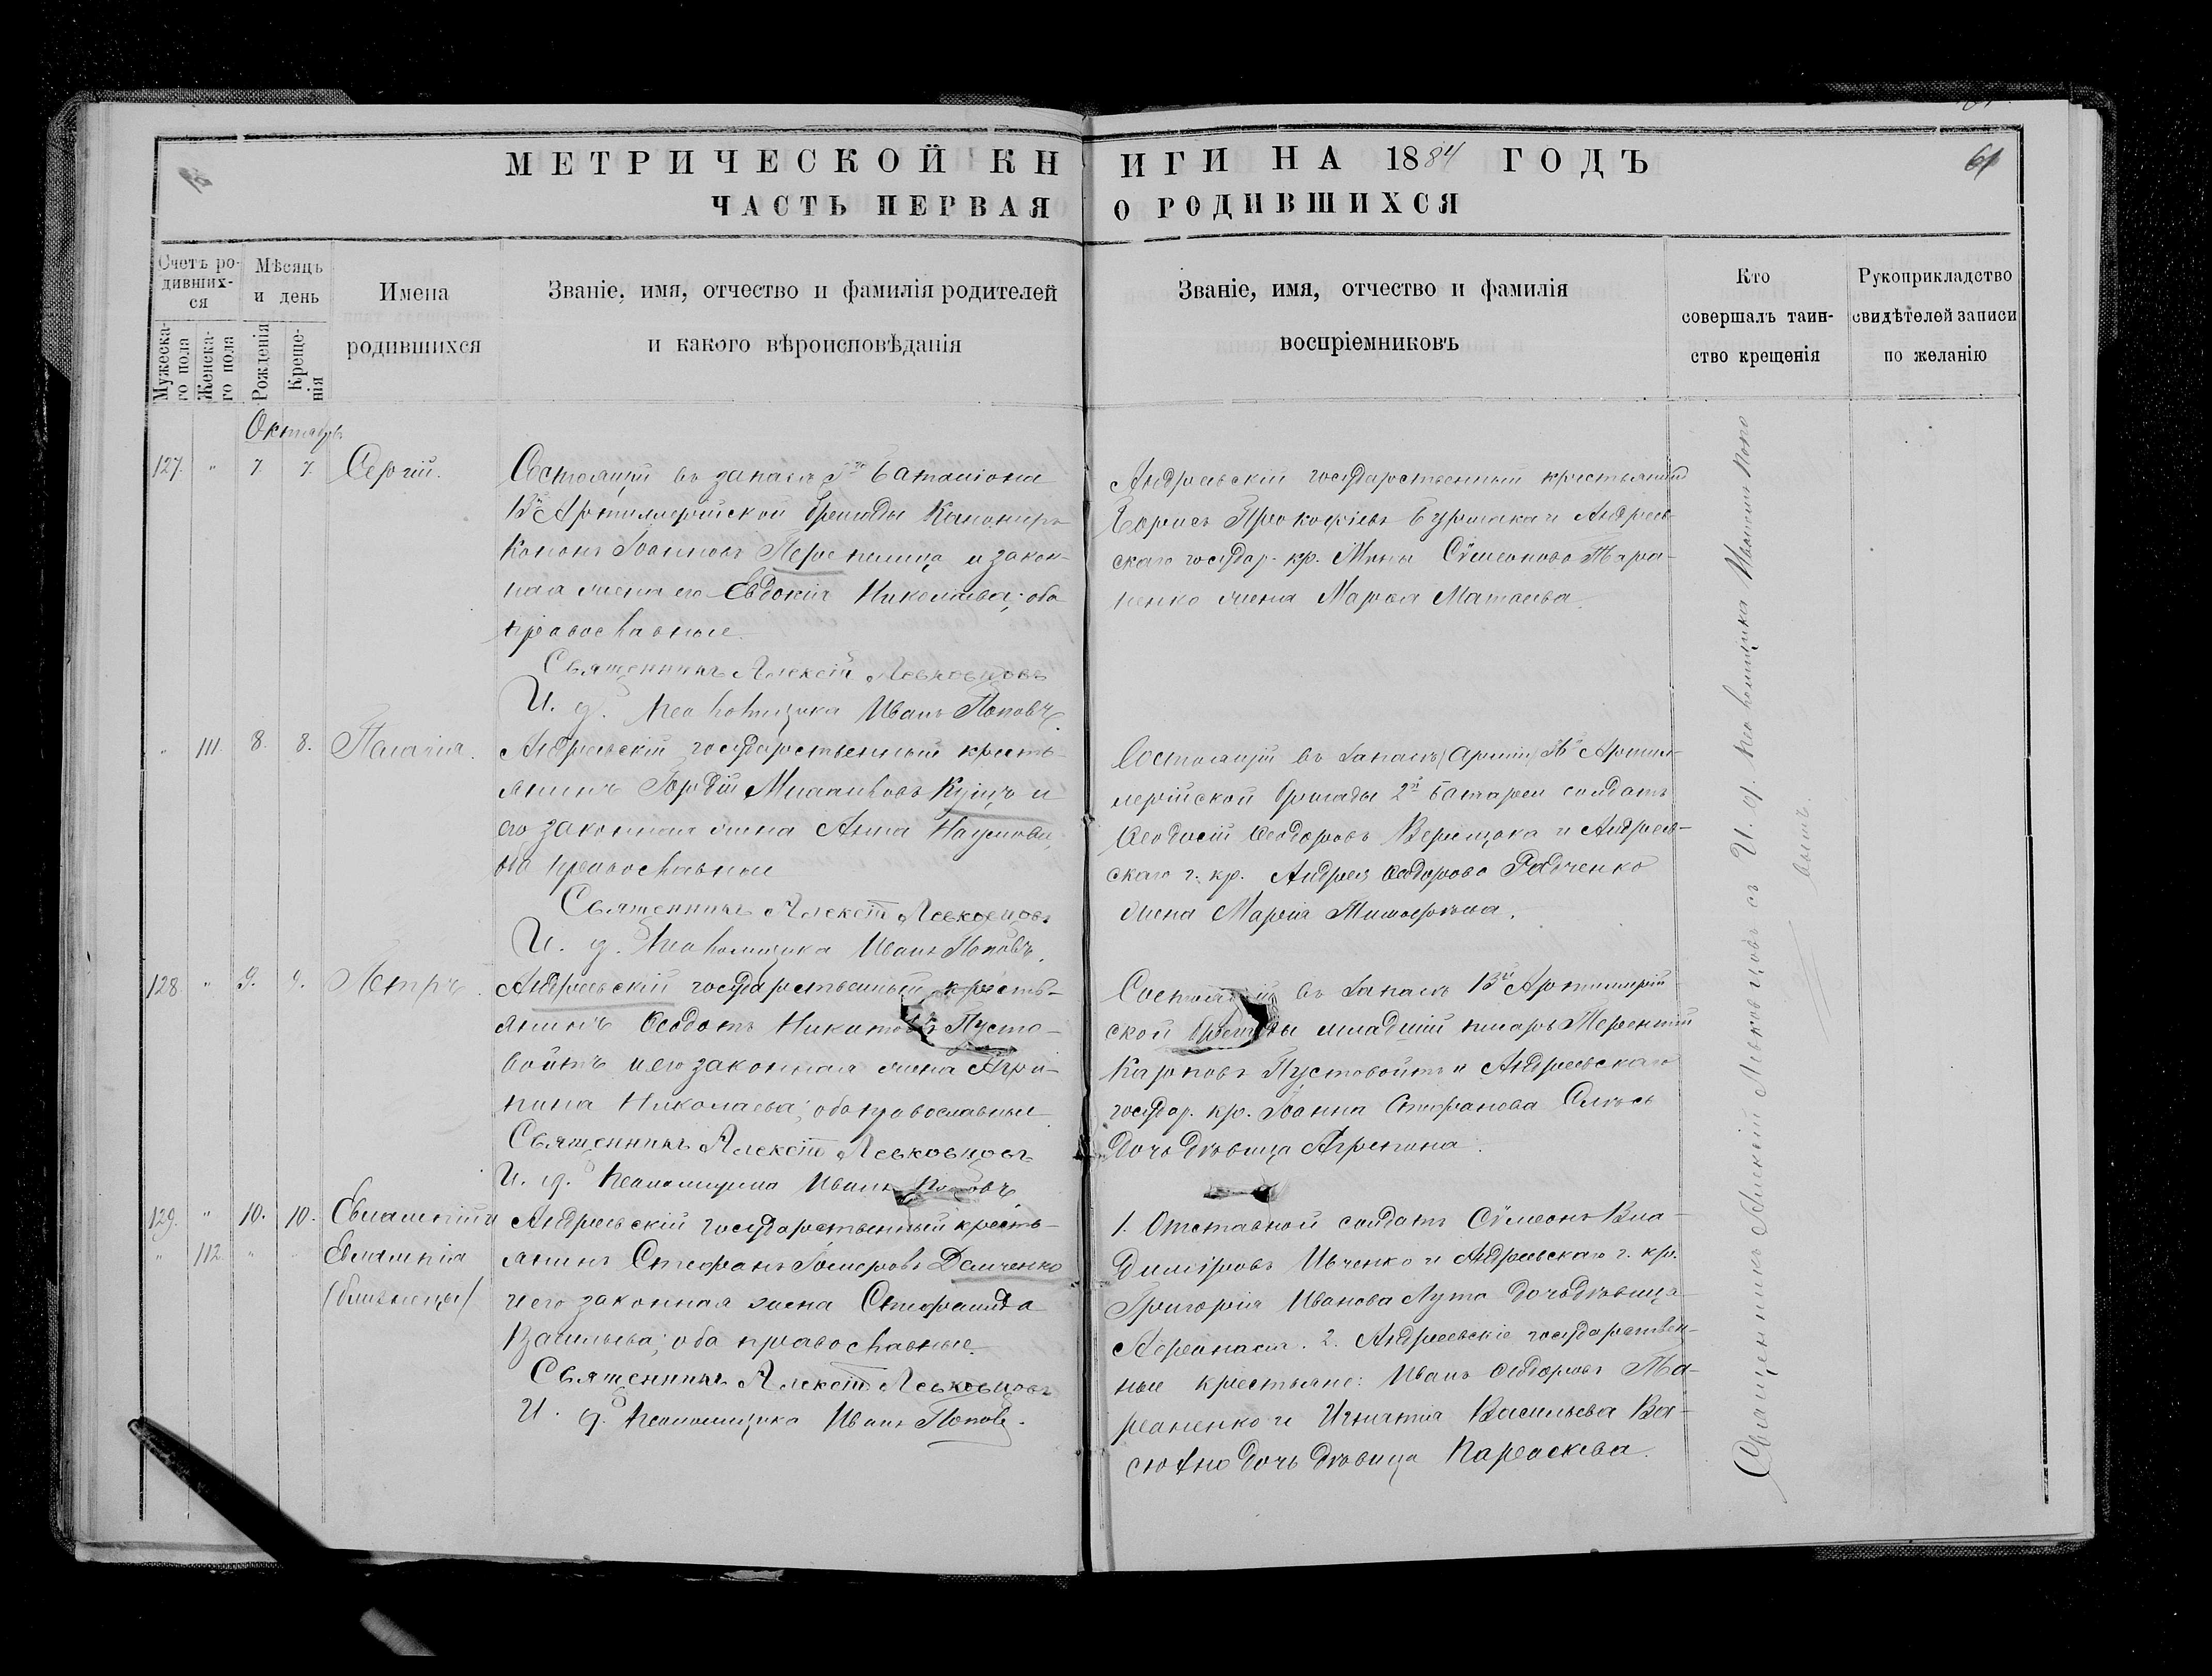 МЕТРИЧЕСКОЙ КНИГИ НА 1884 ГОДЪ
61
ЧАСТЬ ПЕРВАЯ О РОДИВШИХСЯ
Счетъ родившихся
Мужескаго пола
Женскаго пола
Мѣсяцъ и день
Рожденія
Крещенія
Имена
родившихся
Званіе, имя, отчество и фамилія родителей
и какого вѣроисповѣданія
Званіе, имя, отчество и фамилія
воспріемниковъ
Кто
совершалъ таин-
ство крещенія
Рукоприкладство
свидѣтелей записи
по желанію
Октябрь
127. " 7. 7. Сергій.
Состоящій въ запасѣ баталіона
13й Артиллерійской бригады Канониръ
Кононъ Іоанновъ Перепелица и закон-
ная жена его Евдокія Николаева; оба
православные.
Священникъ Алексій Левковцовъ
И. д. псаломщика Иванъ Поповъ
Андреевскій государственный крестьянинъ
Борисъ Прокофіевъ Бурлака и Андреев-
скаго государ. кр. Мины Сѵмеонова Тара-
ненко жена Марѳа Матѳеева.
" 111. 8. 8. Пелагія.
Андреевскій государственный кресть-
янинъ Гордій Михаиловъ Куцъ и
его законная жена Анна Наумова,
оба православные
Священникъ Алексій Левковцовъ
И. д. псаломщика Иванъ Поповъ.
Состоящій въ запасѣ арміи Артил-
лерійской бригады 2й батареи солдатъ
Ѳеодосій Ѳеодоровъ Верещака и Андреев-
скаго г. кр. Андрея Ѳеодорова Радченко
жена Марія Тимоѳеева.
128 " 9. 9. Петръ.
Андреевскій государственный кресть-
янинъ Ѳеодотъ Никитовъ Пусто-
войтъ и его законная жена Агри-
пина Николаева; оба православные
Священникъ Алексій Левковцовъ
И. д. псаломщика Иванъ Поповъ
Состоящій въ запасѣ 13й Артиллерій-
ской бригады младшій писарь Терентій
Карповъ Пустовойтъ и Андреевскаго
государ. кр. Іоанна Стефанова
дочь дѣвица Агрипина.
129. " 10. 10. Евлампій и
" 112. " " Евлампія
/близнецы/
Андреевскій государственный кресть-
янинъ Стефанъ Демченко
и его законная жена Стефанида
Васильева; оба православные.
Священникъ Алексій Левковцовъ
И. д. псаломщика Иванъ Поповъ.
1. Отставной солдатъ Сѵмеонъ Вла-
диміровъ Ивченко и Андреевскаго г. кр.
Григорія Иванова Лута дочь дѣвица
Аѳанасія. 2. Андреевскіе государствен-
ные крестьяне: Иванъ Ѳеодоровъ Та-
раненко и Игнатія Васильева Ва-
сютно дочь дѣвица Параскева.
Священникъ Алексій Левковцовъ съ И. д. псаломщика Иваномъ Попо-
вымъ.